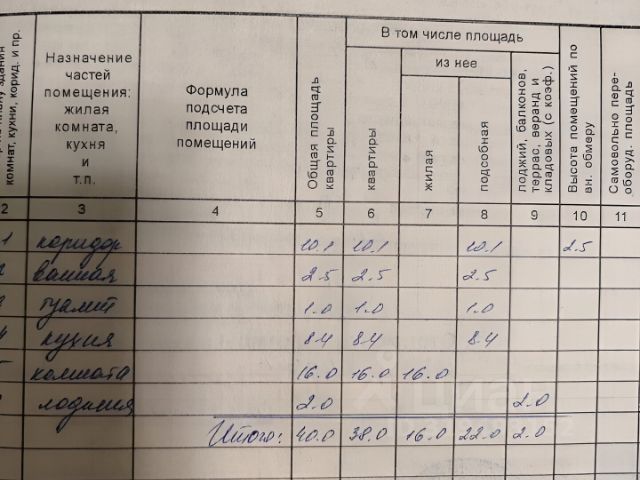 В том числе площадь
из нее
комнат, кухни, корид. и пр.
Назначение
частей
помещения:
жилая
комната,
кухня
и
т.п.
Формула
подсчета
площади
помещений
Общая площадь
квартиры
квартиры
жилая
подсобная
лоджий, балконов,
террас, веранд и
кладовых (с коэф.)
Высота помещений по
вн. обмеру
Самовольно пере-
оборуд. площадь
2 3 4 5 6 7 8 9 10 11
1 коридор 10.1 10.1 10.1 2.5
ванная 2.5 2.5 2.5
туалет 1.0 1.0 1.0
4 кухня 8.4 8.4 8.4
комната 16.0 16.0 16.0
лоджия 2.0 2.0
Итого: 40.0 38.0 16.0 22.0 2.0